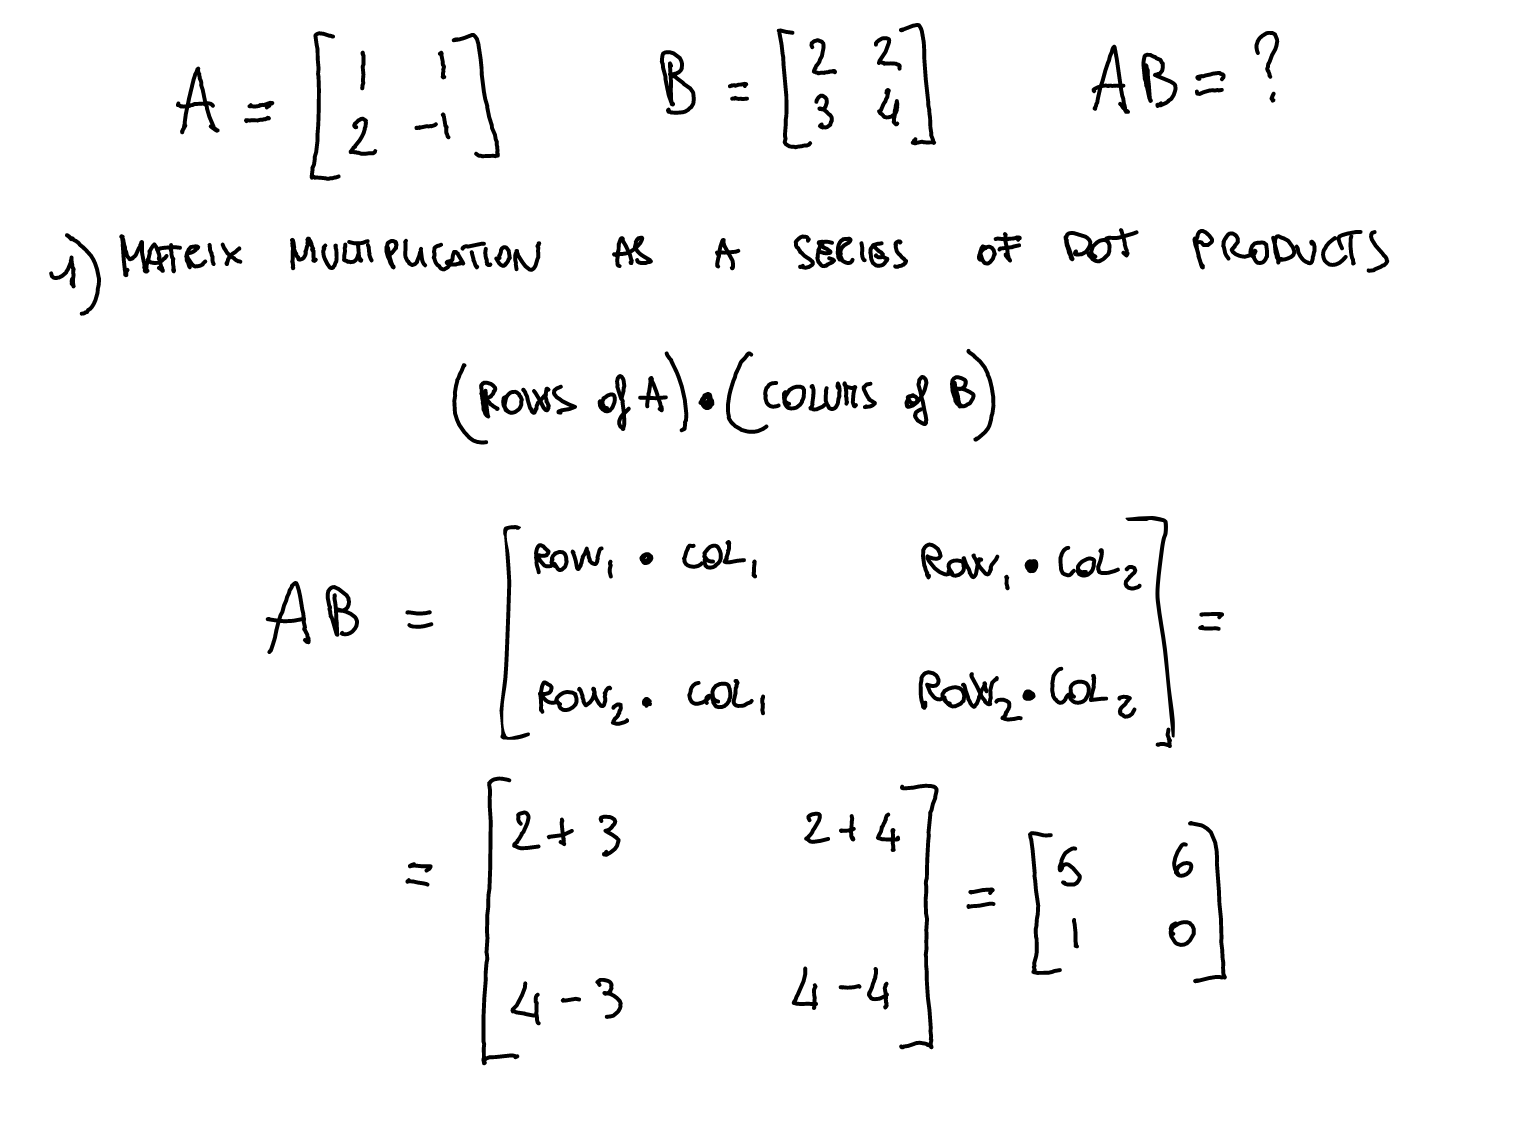 A = [1 1 B = [2 2 AB = ?
2 -1] 3 4]
1) MATRIX MULTIPLICATION AS A SERIES OF DOT PRODUCTS
(ROWS of A) • (COLUMS of B)
AB = [ROW₁ • COL₁ ROW₁ • COL₂
ROW₂ • COL₁ ROW₂ • COL₂] =
= [2 + 3 2 + 4
4 - 3 4 - 4] = [5 6
1 0]